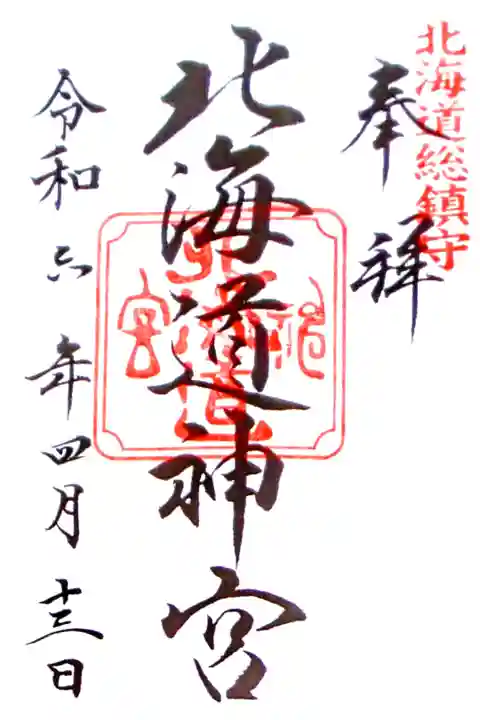 北海道総鎮守
奉拝
北海道神宮
北海道神宮
令和六年四月十三日